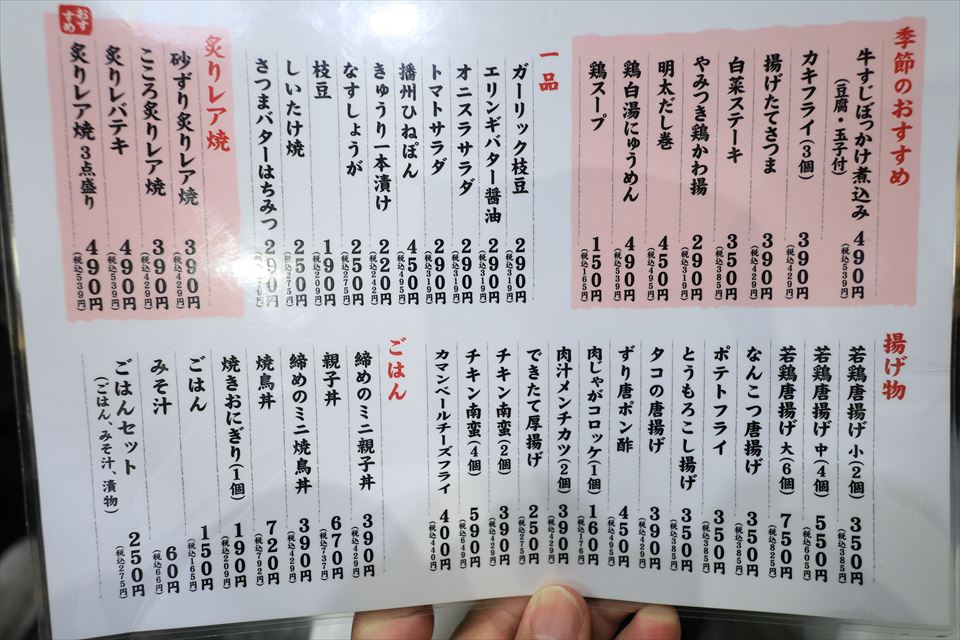 季節のおすすめ
牛すじぼっかけ煮込み
(豆腐・玉子付)
490円
(税込539円)
カキフライ(3個)
390円
(税込429円)
揚げたてさつま
390円
(税込429円)
白菜ステーキ
350円
(税込385円)
やみつき鶏かわ揚
290円
(税込319円)
明太だし巻
450円
(税込495円)
鶏白湯にゅうめん
490円
(税込539円)
鶏スープ
150円
(税込165円)
一品
ガーリック枝豆
290円
(税込319円)
エリンギバター醤油
290円
(税込319円)
オニスラサラダ
290円
(税込319円)
トマトサラダ
290円
(税込319円)
播州ひねぽん
450円
(税込495円)
きゅうり一本漬け
220円
(税込242円)
なすしょうが
250円
(税込275円)
枝豆
190円
(税込209円)
しいたけ焼
250円
(税込275円)
さつまバターはちみつ
290円
炙りレア焼
砂ずり炙りレア焼
390円
(税込429円)
こころ炙りレア焼
390円
(税込429円)
炙りレバテキ
490円
(税込539円)
おすすめ
炙りレア焼 3点盛り
490円
(税込539円)
揚げ物
若鶏唐揚げ 小(2個)
350円
(税込385円)
若鶏唐揚げ 中(4個)
550円
(税込605円)
若鶏唐揚げ 大(6個)
750円
(税込825円)
なんこつ唐揚げ
350円
(税込385円)
ポテトフライ
350円
(税込385円)
とうもろこし揚げ
350円
(税込385円)
タコの唐揚げ
390円
(税込429円)
ずり唐ポン酢
450円
(税込495円)
肉じゃがコロッケ(1個)
160円
(税込176円)
肉汁メンチカツ(2個)
390円
(税込429円)
できたて厚揚げ
250円
(税込275円)
チキン南蛮(2個)
390円
(税込429円)
チキン南蛮(4個)
590円
(税込649円)
カマンベールチーズフライ
400円
(税込440円)
ごはん
締めのミニ親子丼
390円
(税込429円)
親子丼
670円
(税込737円)
締めのミニ焼鳥丼
390円
(税込429円)
焼鳥丼
720円
(税込792円)
焼きおにぎり(1個)
190円
(税込209円)
ごはん
150円
(税込165円)
みそ汁
60円
(税込66円)
ごはんセット
(ごはん、みそ汁、漬物)
250円
(税込275円)